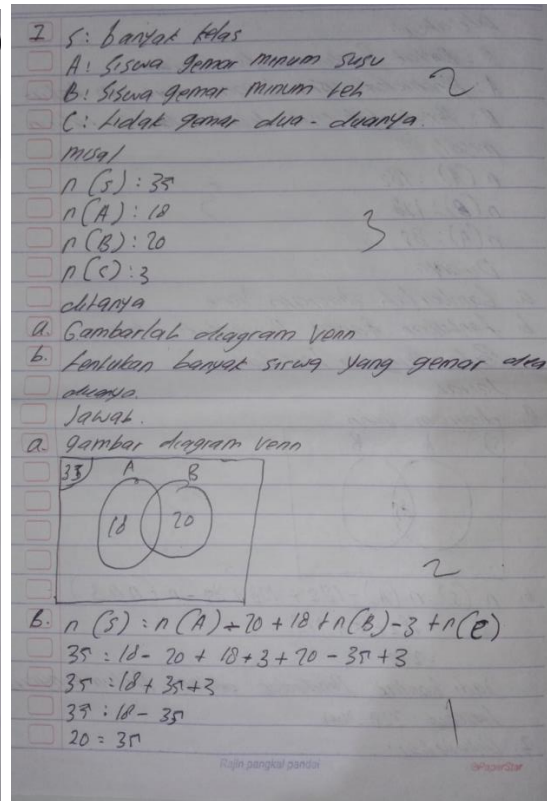 I S : banyak kelas
A : siswa gemar minum susu
B : siswa gemar minum teh
2
C : tidak gemar dua - duanya.
misal
n (S) : 35
n (A) : 18
n (B) : 20
3
n (S) : 3
ditanya
a. Gambarlah diagram Venn
b. tentukan banyak siswa yang gemar dua
duanya.
Jawab.
a. gambar diagram Venn
35 A B
18 20
2
B. n (S) : n (A) - 20 + 18 + n (B) - 3 + n (e)
35 : 18 - 20 + 18 + 3 + 20 - 35 + 3
35 : 18 + 35 + 3
35 : 18 - 35
1
20 = 35
Rajin pangkal pandai
PaperStar